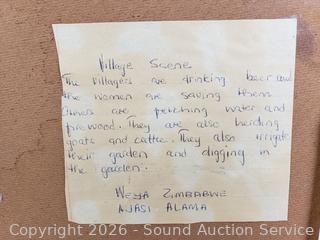 Village Scene
The villagers are drinking beer and
the women are saving them
Others are fetching water and
firewood. They are also herding
goats and cattle. They also irrigate
their garden and digging in
the garden.
WEYA ZIMBABWE
ALAMA
Copyright 2026 - Sound Auction Service